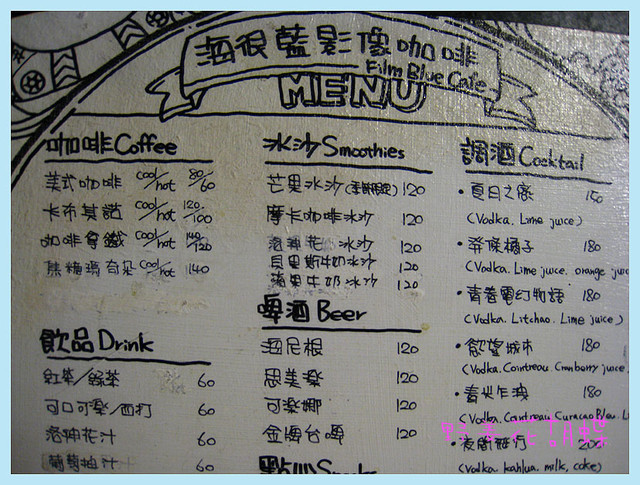 海很藍影像咖啡
Film Blue Cafe
MENU
咖啡 Coffee
美式咖啡 cool/hot 80/60
卡布其諾 cool/hot 120/100
咖啡拿鐵 cool/hot 140/120
焦糖瑪奇朵 cool/hot 140
飲品 Drink
紅茶/綠茶 60
可口可樂/西打 60
洛神花汁 60
葡萄柚汁 60
冰沙 Smoothies
芒果冰沙 120
摩卡咖啡冰沙 120
洛神花冰沙 120
貝里斯牛奶冰沙 120
蘋果牛奶冰沙 120
啤酒 Beer
海尼根 120
思美洛 120
可樂娜 120
金牌台啤 120
點心
調酒 Cocktail
・夏日之戀 150
(Vodka. Lime juice)
・發條橘子 180
(Vodka. Lime juice. orange juic
・青春電幻物語 180
(Vodka. Litchao. Lime juice)
・慾望城市 180
(Vodka. Cointreau. Cranberry juice
180
(Vodka. Cointreau Curacao Bleu. L
200
(Vodka. kahlua. milk, coke)